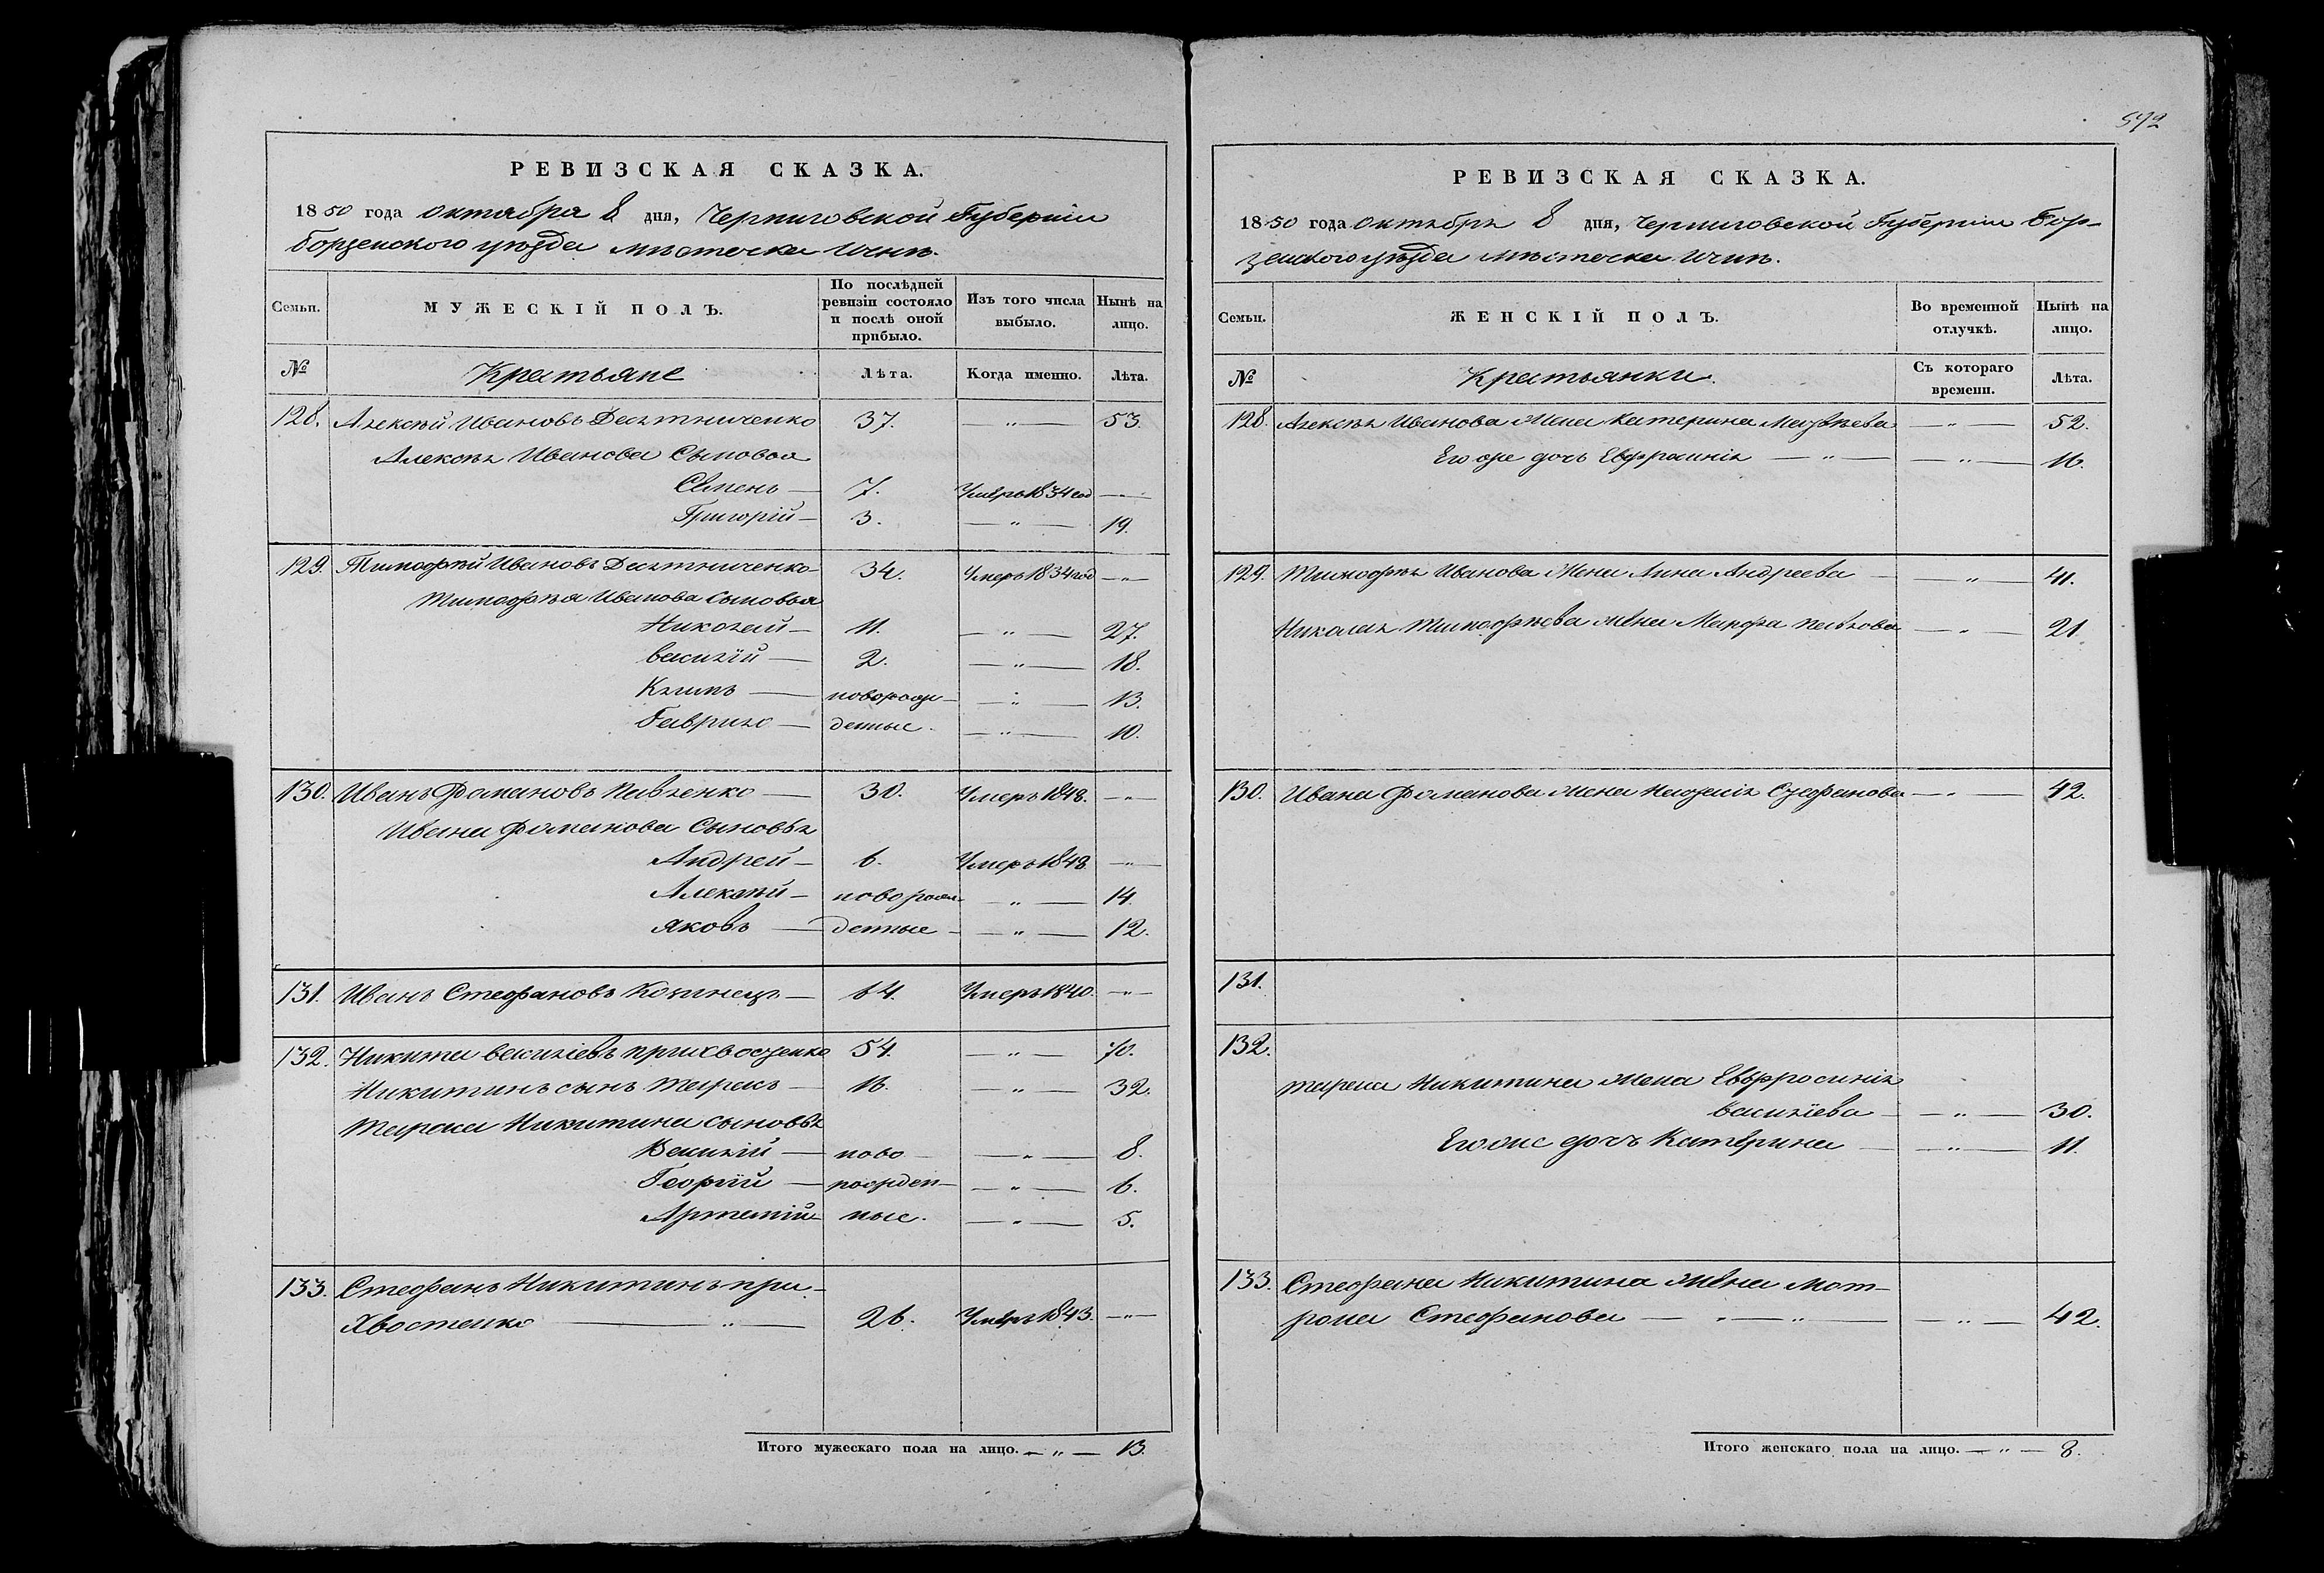 592
РЕВИЗСКАЯ СКАЗКА.
1850 года Октября 8 дня, Черниговской Губерніи
Борзенского уѣзда мѣсточка Ични.
Семьи. МУЖЕСКІЙ ПОЛЪ. По послѣдней ревизіи состояло и послѣ оной прибыло. Изъ того числа выбыло. Нынѣ на лицо.
№ Крестьяне Лѣта. Когда именно. Лѣта.
128. Алексѣй Ивановъ Десятниченко 37. — " — 53.
Алексѣя Иванова Сыновья
Семенъ — 7. Умеръ 1834 год — " —
Григорій — 3. — " — 19.
129. Тимофѣй Ивановъ Десятниченко 34. Умеръ 1834 год — " —
Тимофѣя Иванова Сыновья
Николай — 11. — " — 27.
Василій — 2. — " — 18.
Климъ — новорож- — " — 13.
Гаврило — денные. — " — 10.
130. Иванъ Фомановъ Павленко — 30. Умеръ 1848. — " —
Ивана Фоманова Сыновья
Андрей — 6. Умеръ 1848. — " —
Алексѣй — новорож- — " — 14.
Яковъ — денные — " — 12.
131. Иванъ Стефановъ — 64. Умеръ 1840. — " —
132. Никита Василіевъ Прихвостенко 54. — " — 70.
Никитинъ сынъ Тарасъ — 16. — " — 32.
Тараса Никитина сыновья
Василій — ново — " — 8.
Георгій — рожден- — " — 6.
Артемій ные. — " — 5.
133. Стефанъ Никитинъ При-
хвостенко — " — 26. Умеръ 1843. — " —
Итого мужескаго пола на лицо. — " — 13.
РЕВИЗСКАЯ СКАЗКА.
1850 года Октября 8 дня, Черниговской Губерніи Бор-
зенского уѣзда мѣсточка Ични.
Семьи. ЖЕНСКІЙ ПОЛЪ. Во временной отлучкѣ. Нынѣ на лицо.
№ Крестьянки. Съ котораго времени. Лѣта.
128. Алексѣя Иванова Жена Катерина Матвѣева — " — 52.
Его же дочь Евфросинія — " — — " — 16.
129. Тимофѣя Иванова Жена Анна Андреева — " — 41.
Николая Тимофѣева жена Марфа Павлова — " — 21.
130. Ивана Фоманова Жена Стефанова — " — 42.
131.
132.
Тараса Никитина Жена Евфросинія
Василіева — " — 30.
Его же дочь Катерина — " — 11.
133. Стефана Никитина жена Мот-
рона Стефанова — " — " — — " — 42.
Итого женскаго пола на лицо. — " — 8.